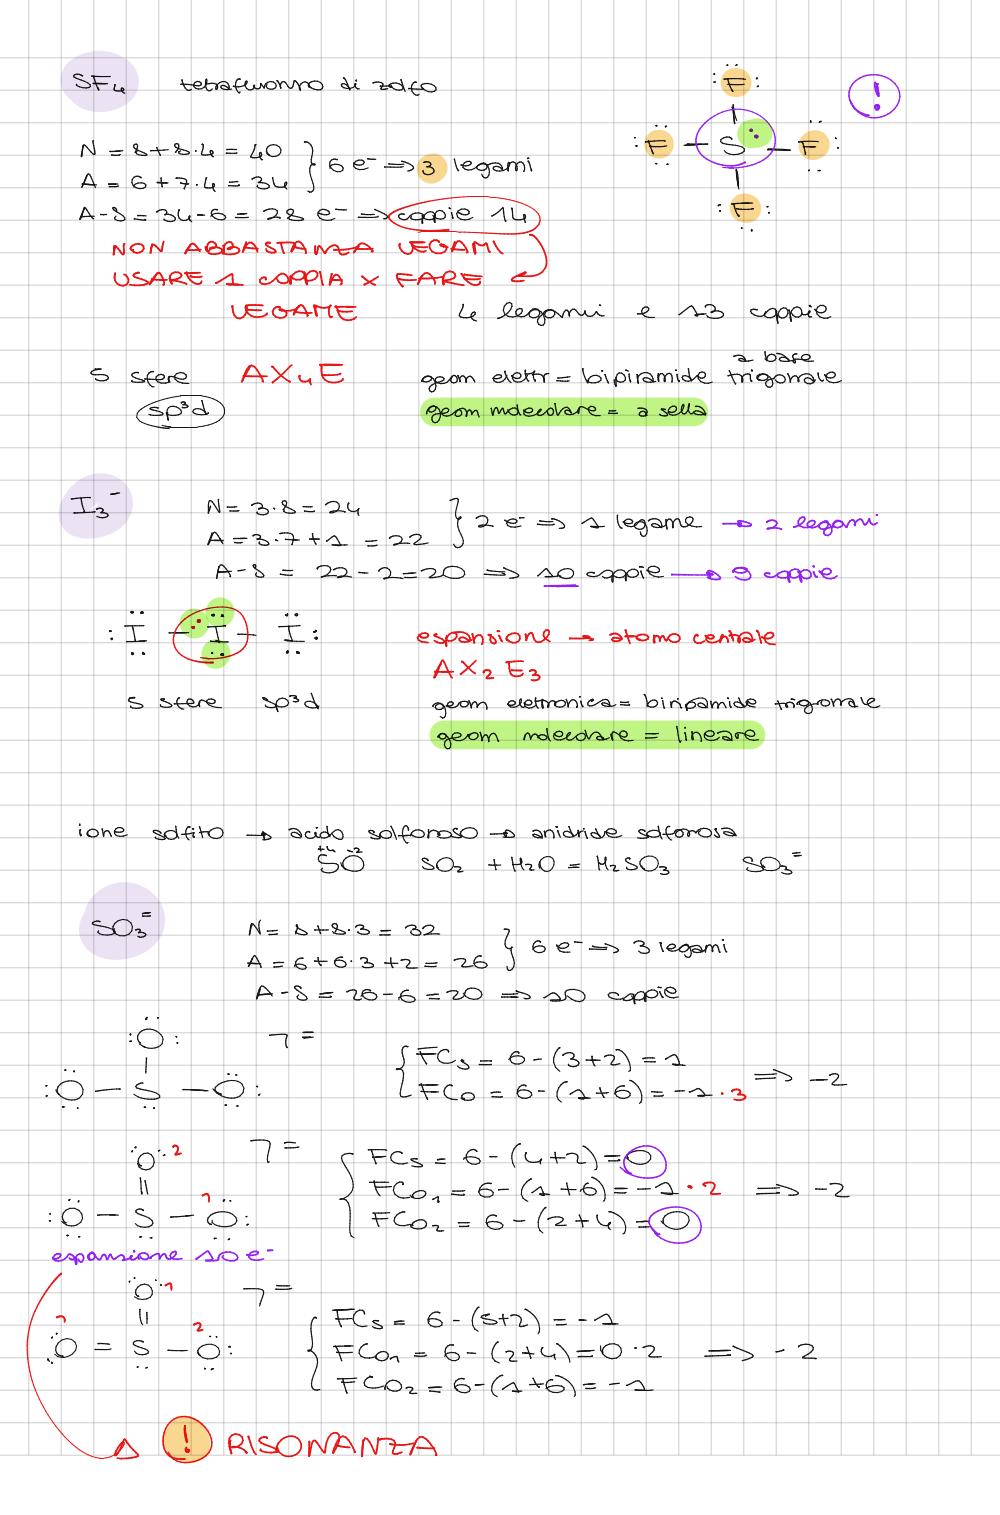 SF₄ tetrafluoruro di zolfo
:F:
!
:F - S - F:
:F:
N = 8+8·4 = 40
A = 6+7·4 = 34
6 e⁻ => 3 legami
A-S = 34-6 = 28 e⁻ => coppie 14
NON ABBASTANZA LEGAMI
USARE 1 COPPIA x FARE
LEGAME 4 legami e 13 coppie
5 sfere AX₄E geom elettr = bipiramide trigonale
a base
sp³d geom molecolare = a sella
I₃⁻ N = 3·8 = 24
A = 3·7+1 = 22
2 e⁻ => 1 legame → 2 legami
A-S = 22-2=20 => 10 coppie → 9 coppie
:I - I - I:
espansione → atomo centrale
AX₂E₃
5 sfere sp³d geom elettronica = biripamide trigonale
geom molecolare = lineare
ione solfito → acido solforoso → anidride solforosa
+4 -2
SO SO₂ + H₂O = H₂SO₃ SO₃⁼
SO₃⁼ N = 8+8·3 = 32
A = 6+6·3+2 = 26
6 e⁻ => 3 legami
A-S = 26-6 = 20 => 10 coppie
:O: ⁼
:O - S - O:
FCs = 6-(3+2) = 1
FCo = 6-(1+6) = -1·3 => -2
O 2 ⁼
||
:O - S - O: 1
FCs = 6-(4+2)=0
FCo₁ = 6-(1+6) = -1·2 => -2
FCo₂ = 6-(2+4) = 0
espansione 10 e⁻
O 1 ⁼
||
1 2
O = S - O:
FCs = 6-(5+2) = -1
FCo₁ = 6-(2+4) = 0·2 => -2
FCo₂ = 6-(1+6) = -1
! RISONANZA